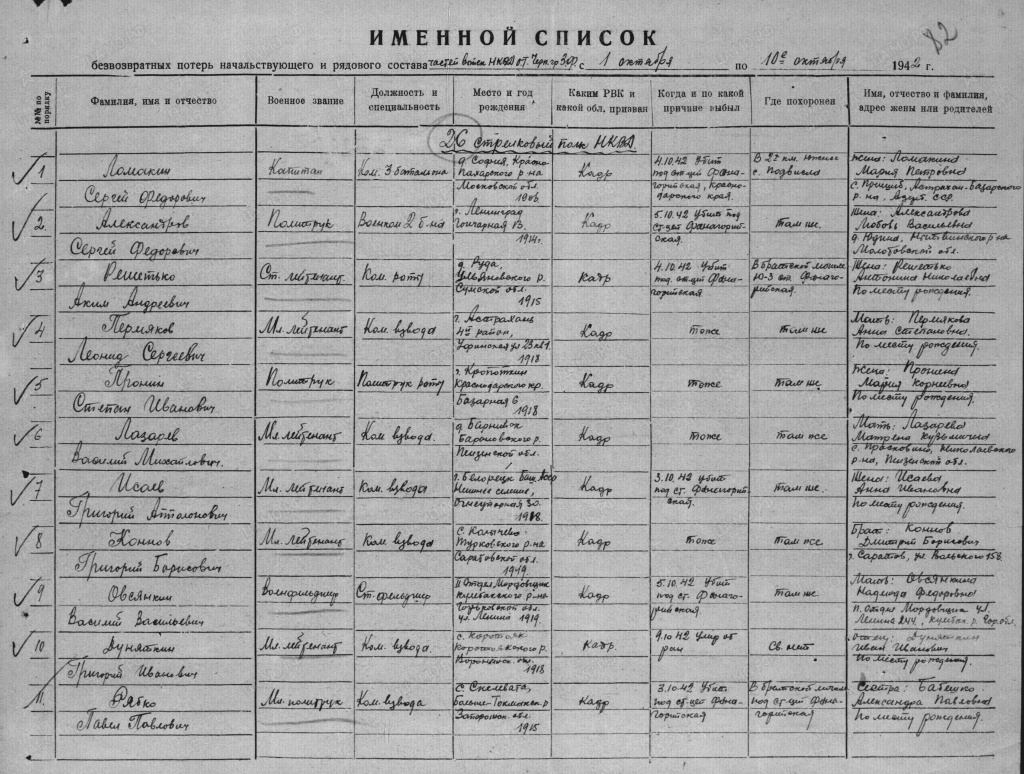 82
ИМЕННОЙ СПИСОК
безвозвратных потерь начальствующего и рядового состава частей войск НКВД с 1 октября по 10е октября 1942 г.
№№ по порядку
Фамилия, имя и отчество
Военное звание
Должность и специальность
Место и год рождения
Каким РВК и какой обл. призван
Когда и по какой причине выбыл
Где похоронен
Имя, отчество и фамилия, адрес жены или родителей
26 стрелковый полк НКВД
1 Ломакин Сергей Федорович
Капитан
Ком. 3 батальона
д. София, Красно-Пахарского р-на Московской обл. 1906
Кадр
4.10.42 Убит под ст-цей Фанагорийская, Краснодарского края.
В 2х км. южнее с.
Жена: Ломакина Мария Петровна
с. Пришиб, Астрахан-Базарского р-на, Азерб. ССР.
2 Александров Сергей Федорович
Политрук
Военком 2 б-на
г. Ленинград Гончарная 1914г.
Кадр
5.10.42 Убит под ст-цей Фанагорийская.
там же
Жена: Александрова Любовь Васильевна
д. Юдина, р-на Молотовской обл.
3 Решетько Аким Андреевич
Ст. лейтенант
Ком. роты
д. Руда, Ульяновского р. Сумской обл. 1915
Кадр
4.10.42 Убит под ст-цей Фанагорийская
В братской могиле
Жена: Решетько Антонина Николаевна
По месту рождения.
4 Пермяков Леонид Сергеевич
Мл. лейтенант
Ком. взвода
г. Астрахань 4й район, 1918
Кадр
тоже
там же
Мать: Пермякова Анна Степановна.
По месту рождения.
5 Пронин Степан Иванович
Политрук
Политрук роты
г. Кропоткин Краснодарского кр. Базарная 6 1918
Кадр
тоже
там же
Жена: Пронина Мария Корнеевна
По месту рождения.
6 Лазарев Василий Михайлович.
Мл. лейтенант
Ком. взвода.
д. Пензенской обл.
Кадр
тоже
там же
Мать: Лазарева Матрена Кузьминична
Николаевского р-на, Пензенской обл.
7 Исаев Григорий
Мл. лейтенант
Ком. взвода.
г. Белорецк Баш. АССР Нижнее селение, Огнеупорная 30. 1918.
Кадр
3.10.42 убит под ст. Фанагорийской.
там же.
Жена: Исаева Анна Ивановна
По месту рождения.
8 Коннов Григорий Борисович
Мл. лейтенант
Ком взвода
с. Колычево Турковского р-на Саратовской обл. 1919.
Кадр
тоже
там же
Брат: Коннов Дмитрий Борисович
г. Саратов, ул. Вольского 158.
9 Овсянкин Василий Васильевич
Военфельдшер
Ст. фельдшер
п. Отдел Мордовщик Кулебакского р-на Горьковской обл. ул. Ленина 1919.
Кадр
5.10.42 Убит под ст. Фанагорийская
там же
Мать: Овсянкина Надежда Федоровна
п. отдел Мордовщик ул. Ленина 244, Кулебак. р. Гор. обл.
10 Дуняткин Григорий Иванович
Мл. лейтенант
Ком. взвода.
с. Коротояк Коротоякского р. Воронежск. обл. 1918
Кадр.
9.10.42 Умер от ран
Св. нет
Отец: Дуняткин Иван Иванович
По месту рождения.
11. Рябко Павел Павлович
Мл. политрук
Ком. взвода
с. Больше-Токмакск. р Запорожск. обл. 1915
Кадр
3.10.42 Убит под ст-цей Фанагорийская
В братской могиле под ст-цей Фанагорийская
Сестра: Бабешко Александра Павловна
По месту рождения.